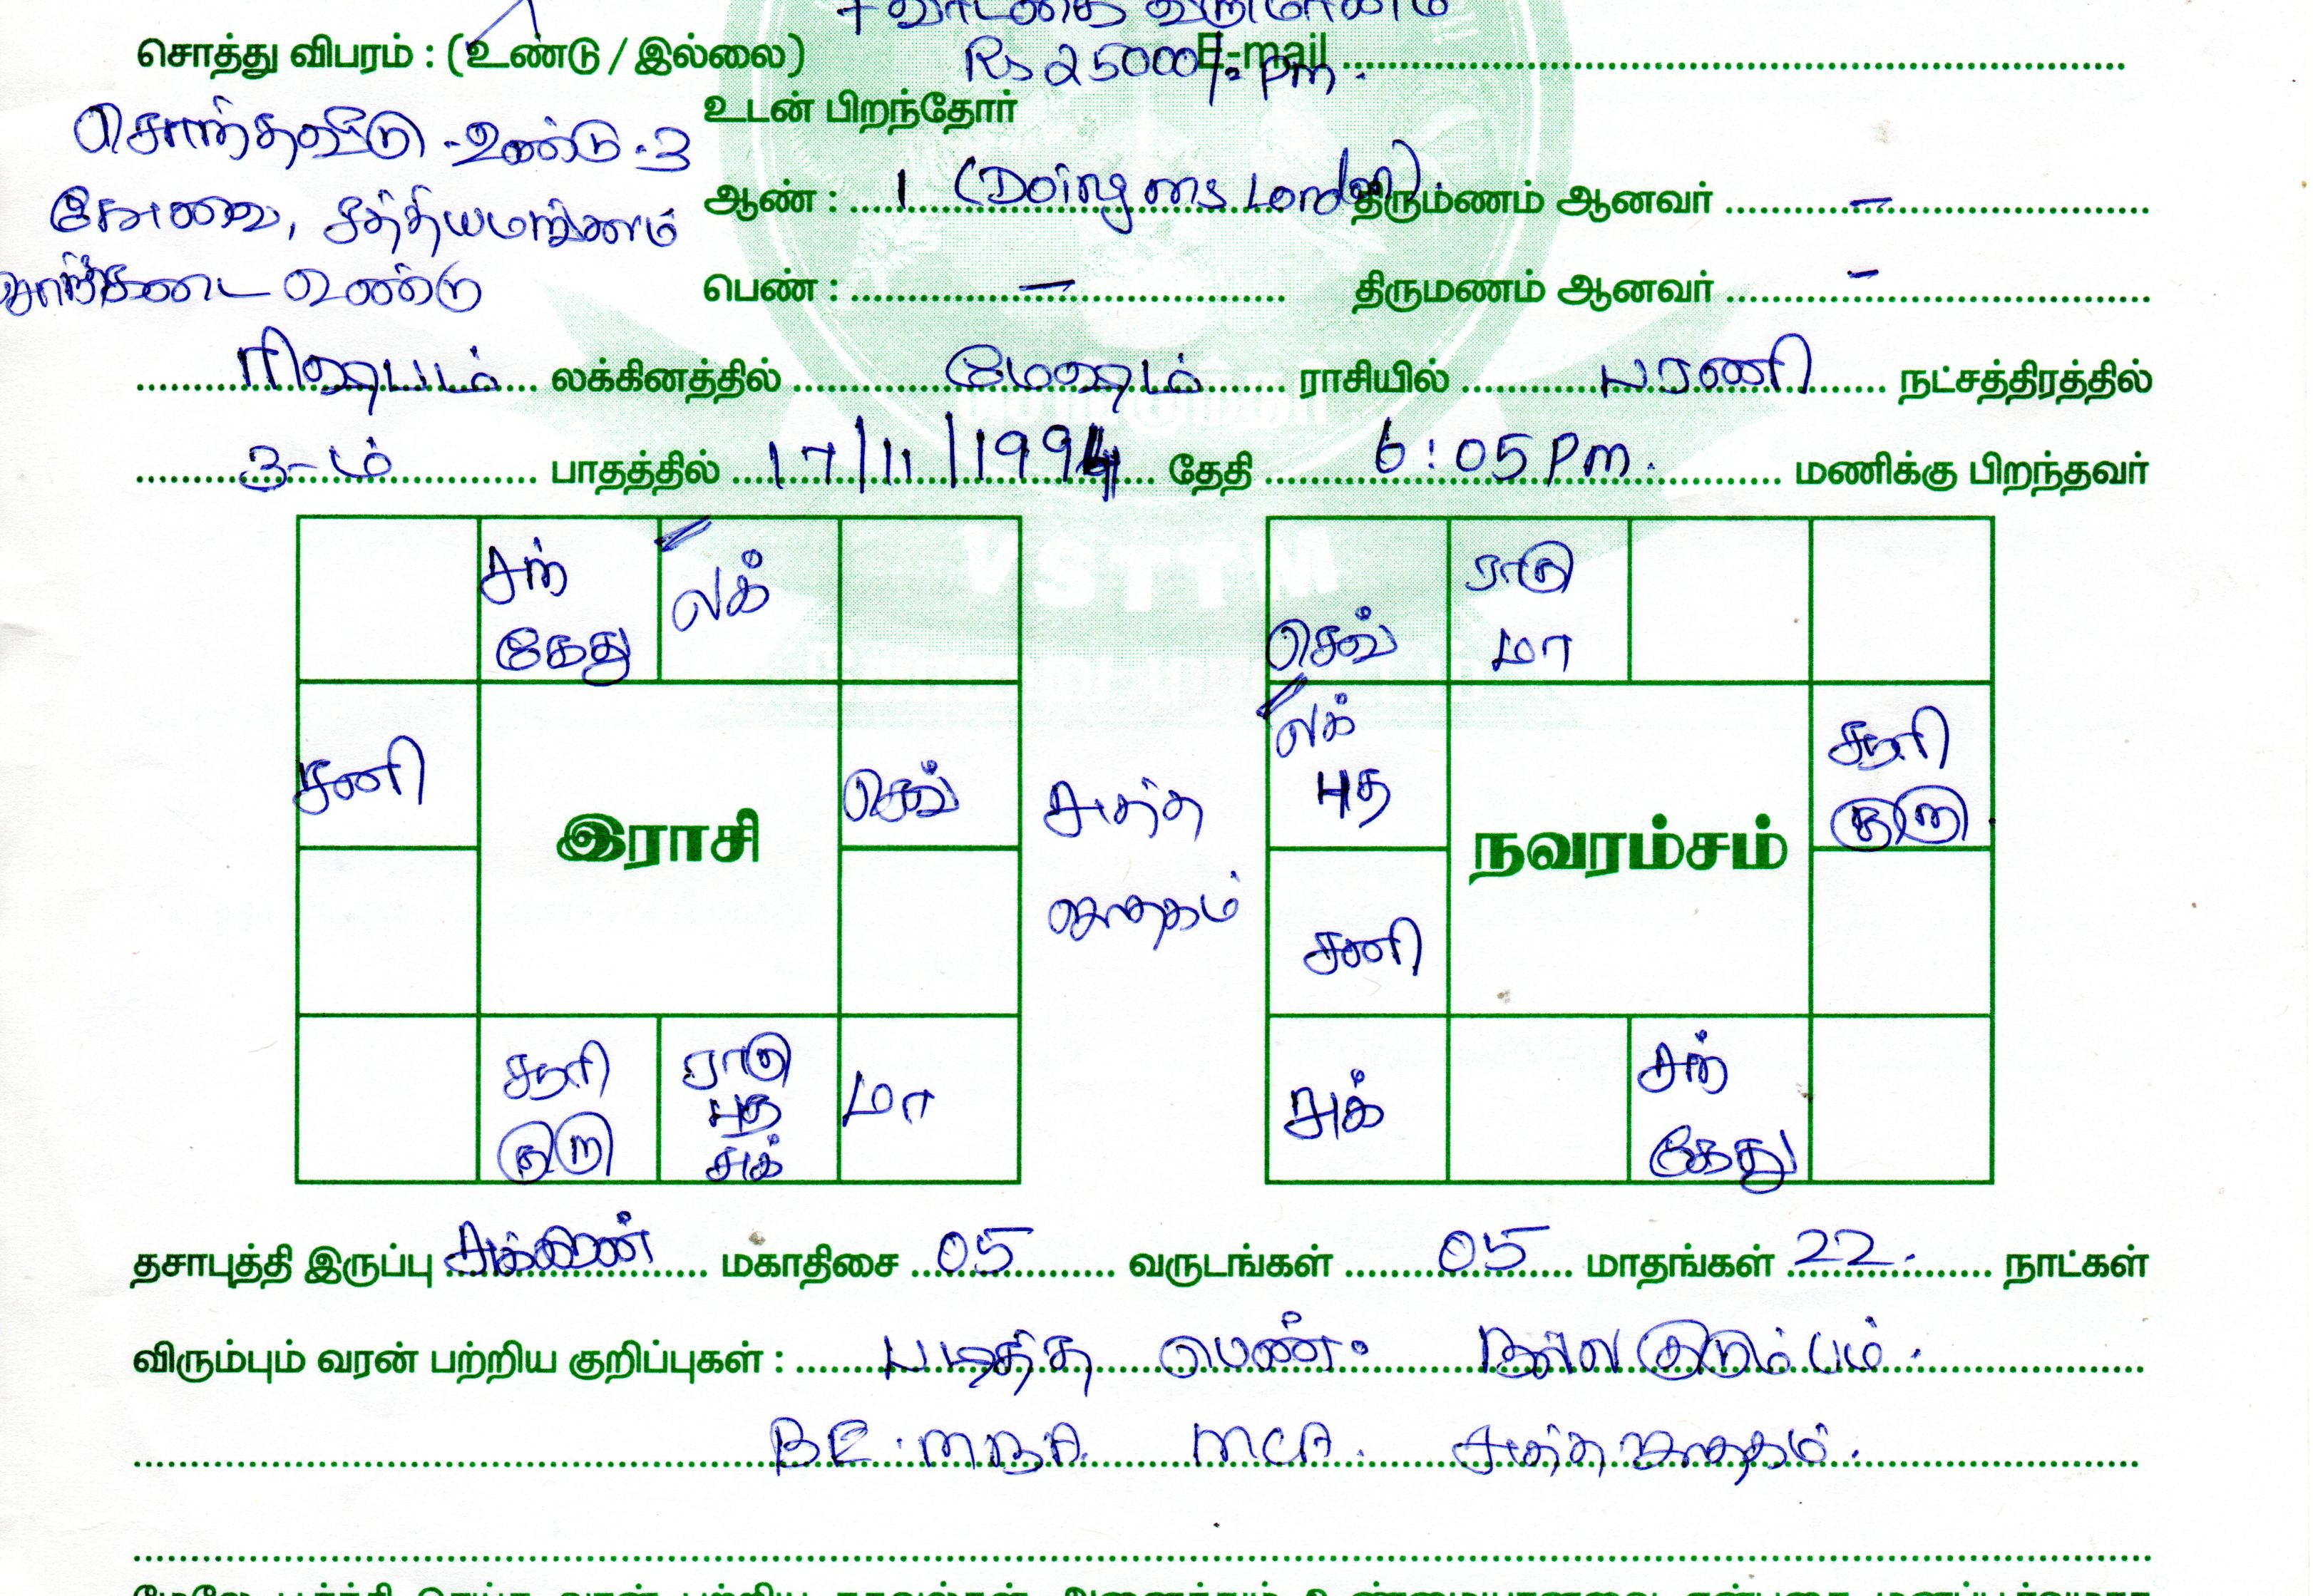 + வாடகை வருமானம்
சொத்து விபரம் : (உண்டு / இல்லை) Rs 25000/- pm. E-mail
சொந்தவீடு - உண்டு - 3 உடன் பிறந்தோர்
கோவை, சத்தியமங்கலம் ஆண் : 1 (Doing ms London) திருமணம் ஆனவர் –
உண்டு பெண் : – திருமணம் ஆனவர் –
ரிஷபம் லக்கினத்தில் மேஷம் ராசியில் பரணி நட்சத்திரத்தில்
3-ம் பாதத்தில் 17/11/1994 தேதி 6:05 Pm. மணிக்கு பிறந்தவர்
VSTTM
சந் கேது லக்
சனி இராசி செவ்
சூரி குரு ராகு புத சுக் மா
சுத்த ஜாதகம்
செவ் ராகு மா
லக் புத நவரம்சம் சூரி குரு
சனி
சுக் சந் கேது
தசாபுத்தி இருப்பு சுக்கிரன் மகாதிசை 05 வருடங்கள் 05 மாதங்கள் 22. நாட்கள்
விரும்பும் வரன் பற்றிய குறிப்புகள் : படித்த பெண். நல்ல குடும்பம்.
BE. MBA MCA. சுத்த ஜாதகம்.